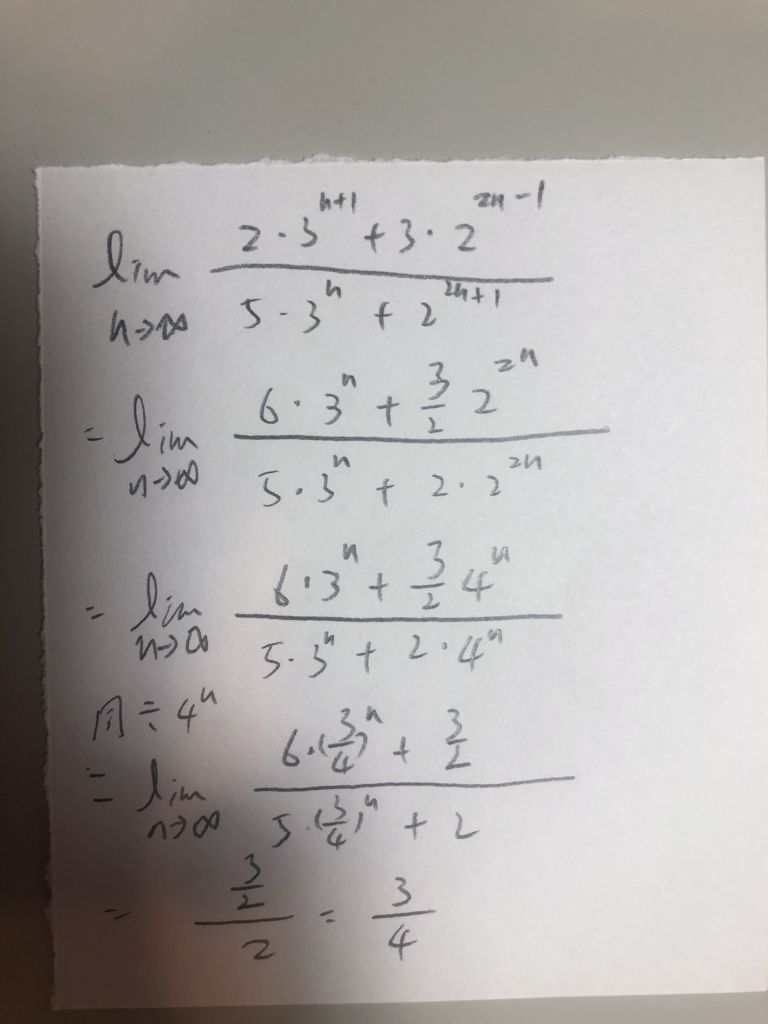 lim n→∞ (2·3^(n+1) + 3·2^(2n-1)) / (5·3^n + 2^(2n+1))
= lim n→∞ (6·3^n + 3/2 2^(2n)) / (5·3^n + 2·2^(2n))
= lim n→∞ (6·3^n + 3/2 4^n) / (5·3^n + 2·4^n)
同÷4^n
= lim n→∞ (6·(3/4)^n + 3/2) / (5·(3/4)^n + 2)
= (3/2) / 2 = 3/4